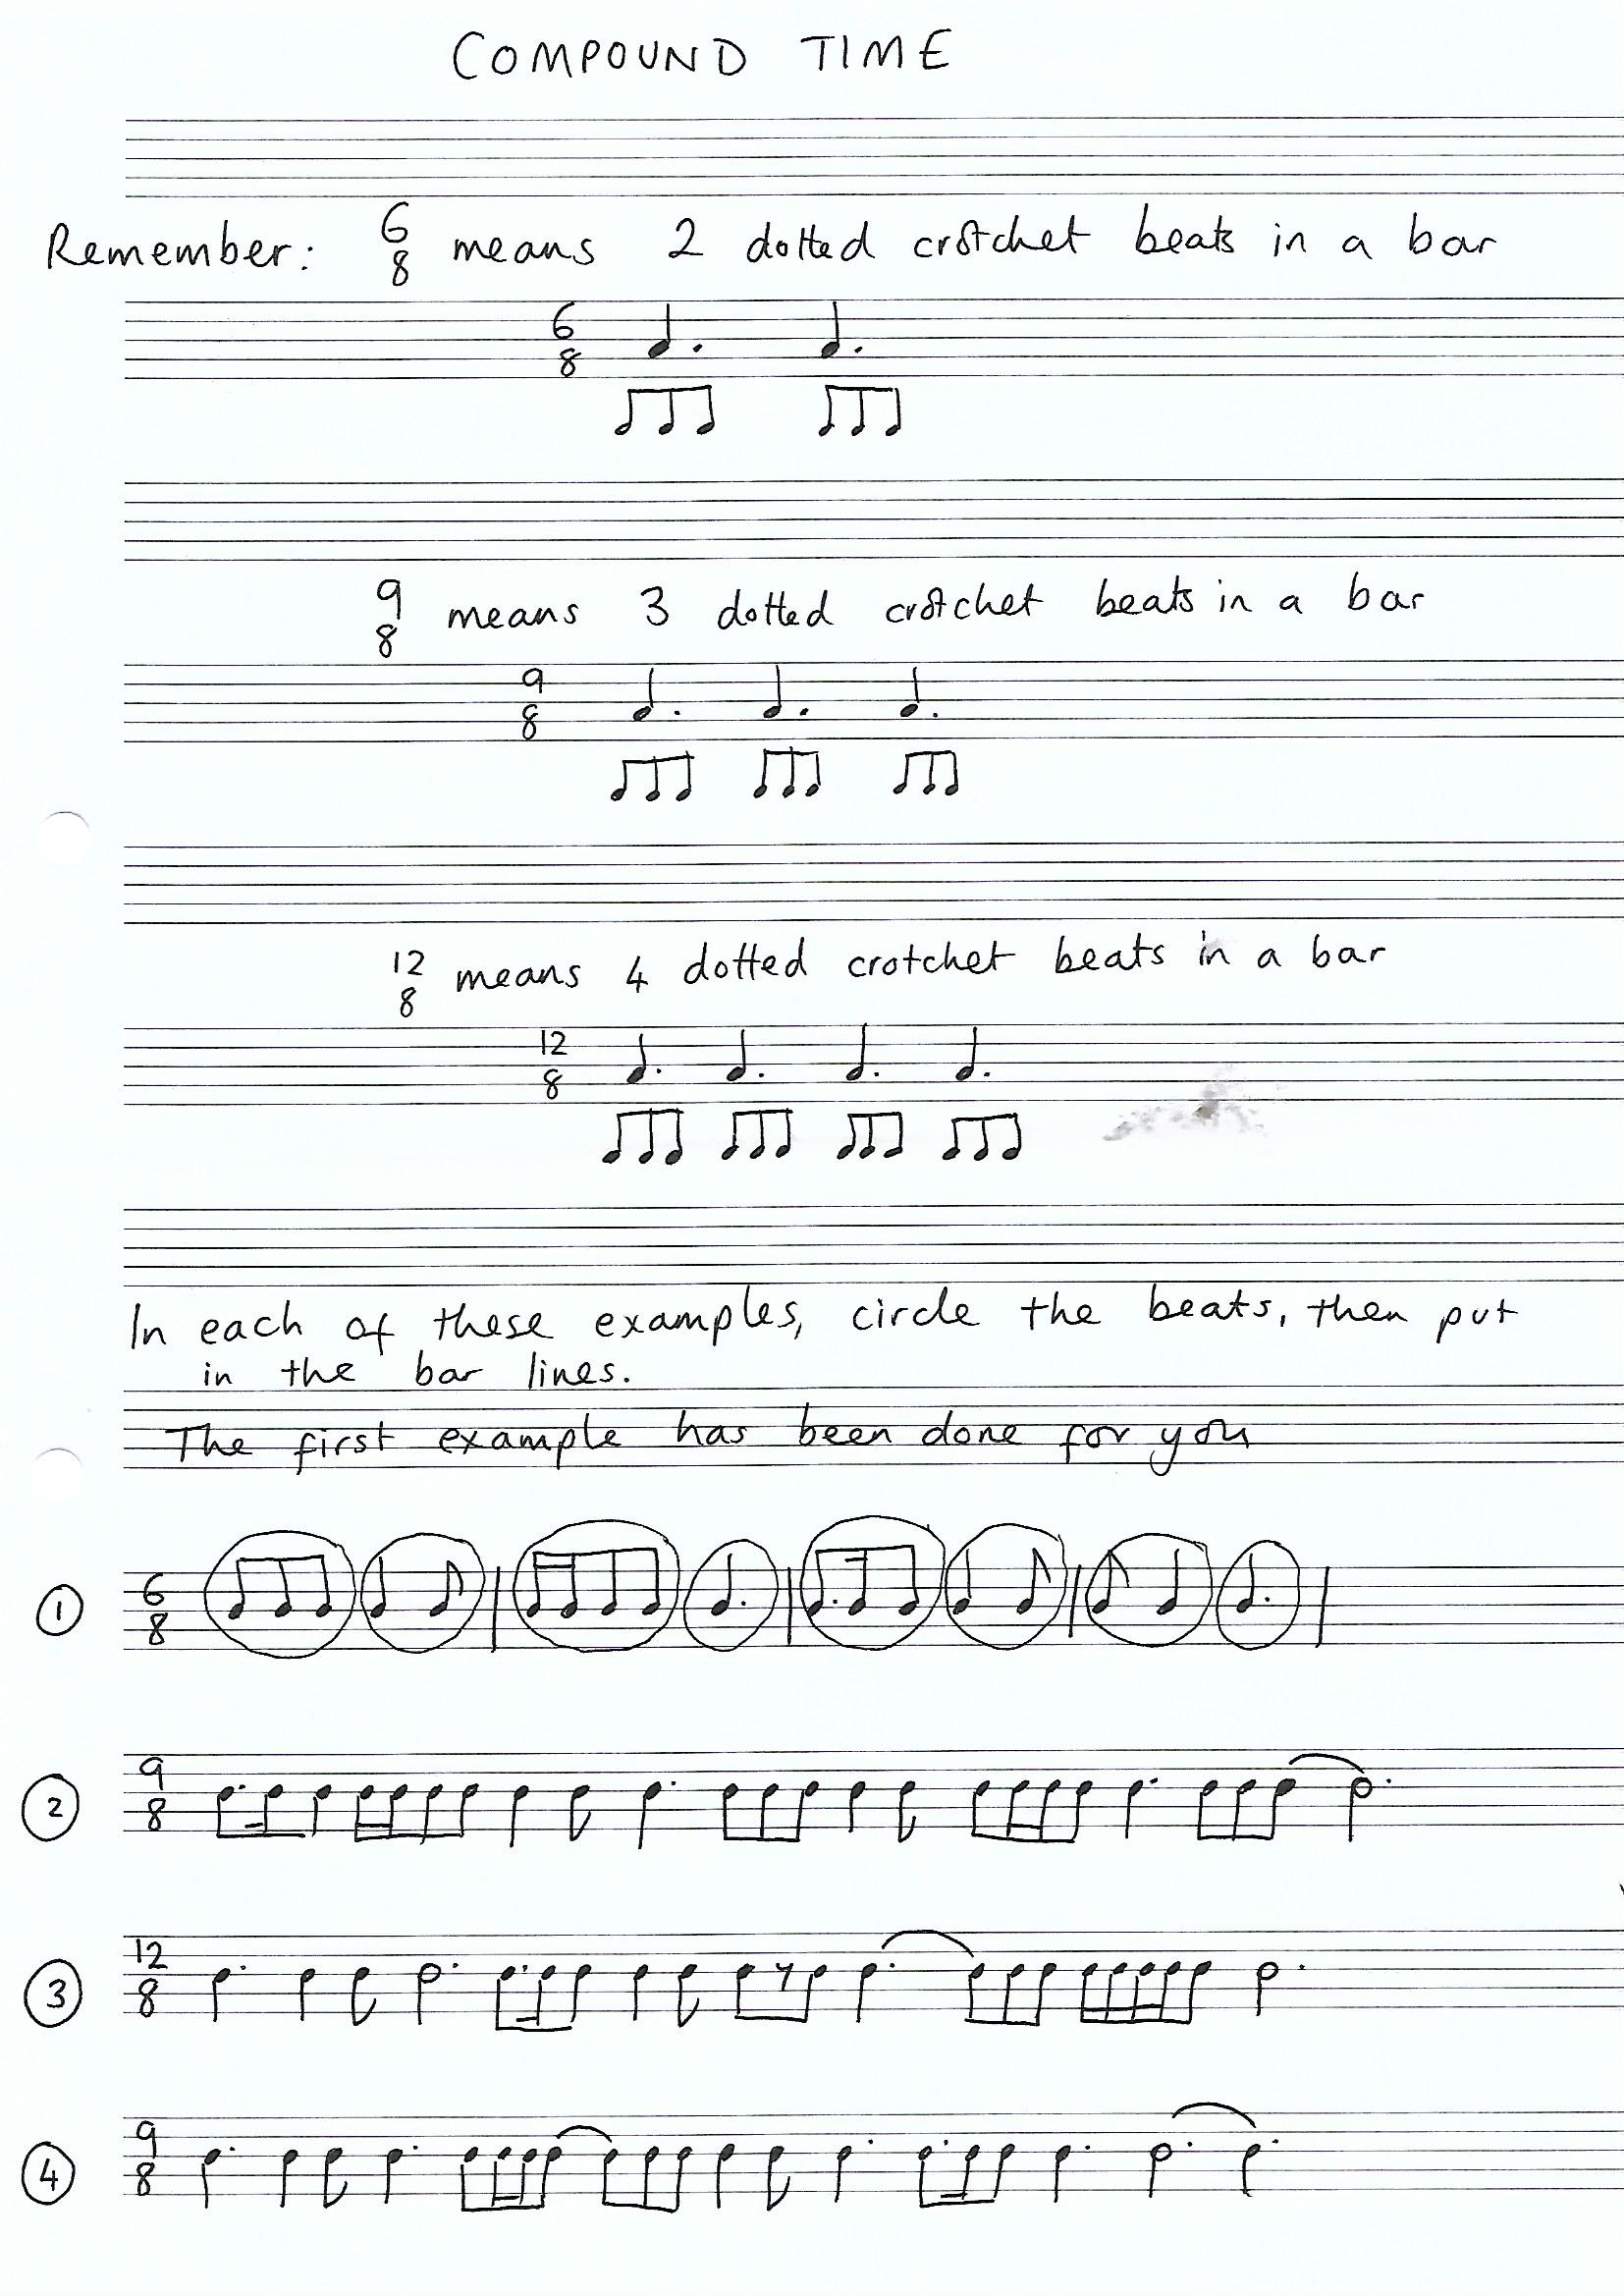 COMPOUND TIME
Remember: 6/8 means 2 dotted crotchet beats in a bar
6/8
9/8 means 3 dotted crotchet beats in a bar
9/8
12/8 means 4 dotted crotchet beats in a bar
12/8
In each of these examples, circle the beats, then put
in the bar lines.
The first example has been done for you
1 6/8
2 9/8
3 12/8
4 9/8